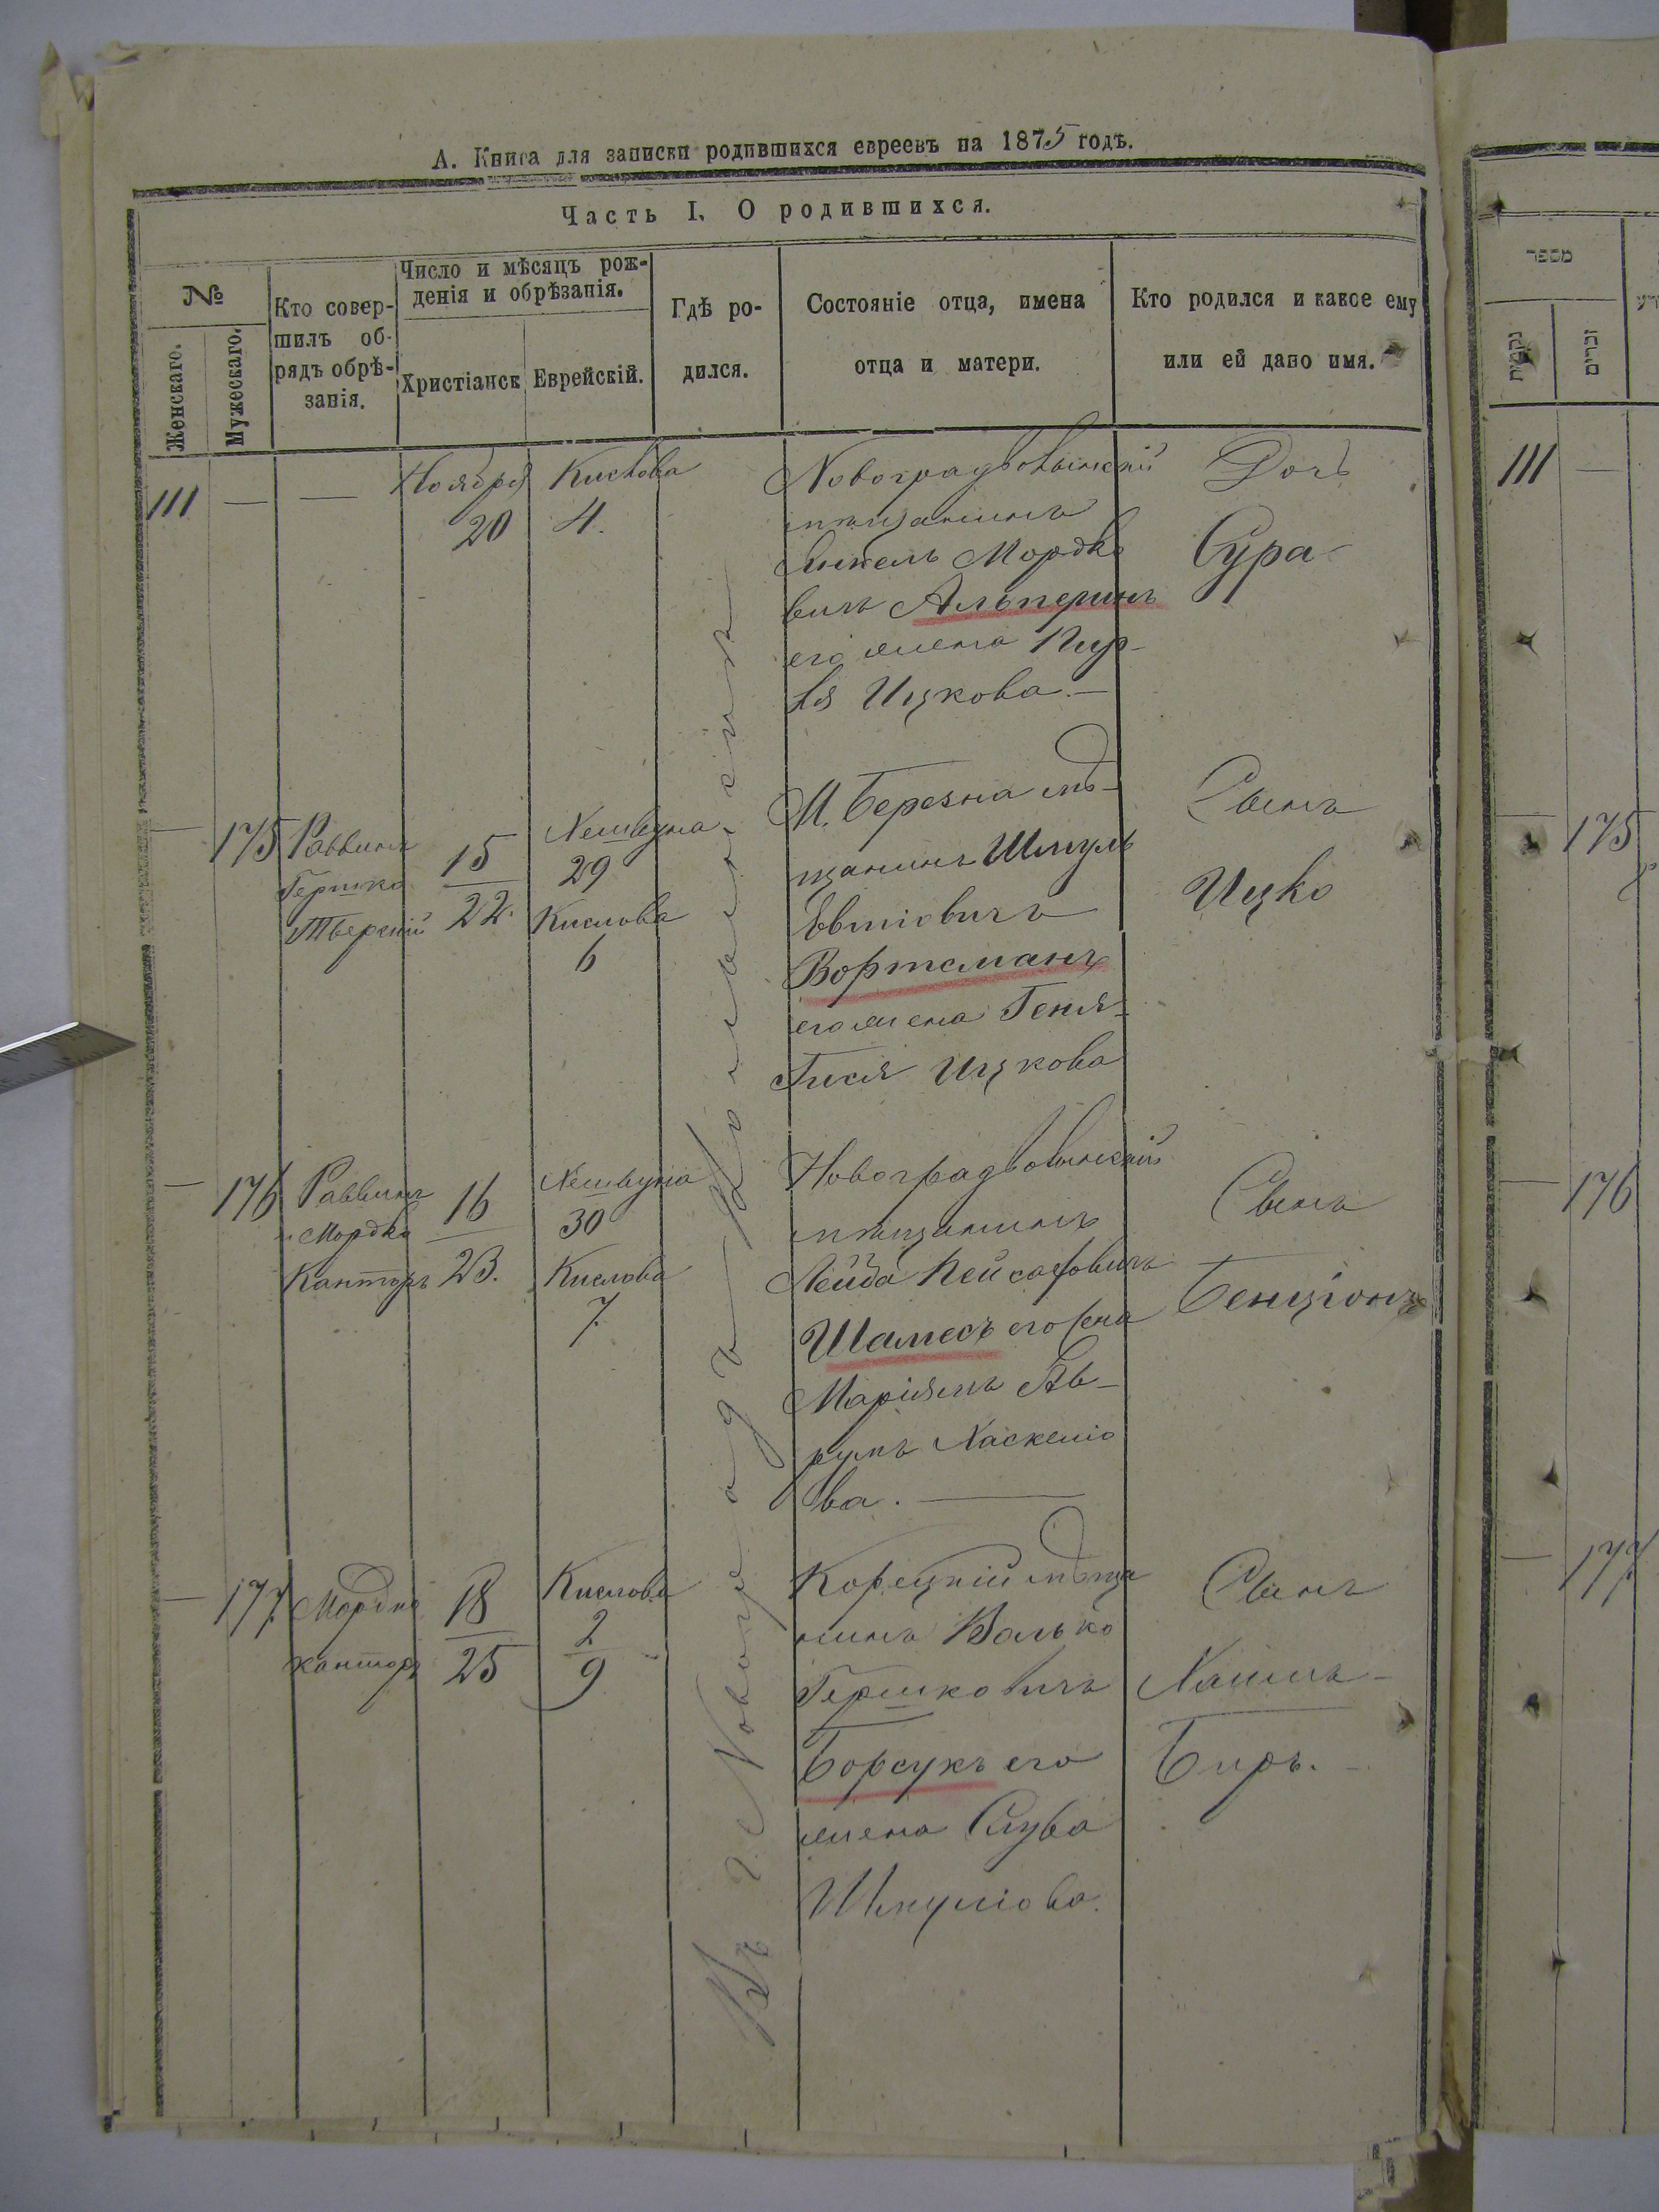 А. Книга для записки родившихся евреевъ на 1875 годъ.
Часть I. О родившихся.
№
Женскаго.
Мужескаго.
Кто совер-
шилъ об-
рядъ обрѣ-
занія.
Число и мѣсяцъ рож-
денія и обрѣзанія.
Христіанск
Еврейскій.
Гдѣ ро-
дился.
Состояніе отца, имена
отца и матери.
Кто родился и какое ему
или ей дано имя.
111
—
—
Ноября
20
Кислова
4.
Новоградволынскій
мѣщанинъ
Мордко
вичъ Альперинъ
его жена Пер-
ля Ицкова.—
Дочь
Сура
—
175
Раввинъ
Гершко
Тверскій
15
22.
Хешвуна
29
Кислова
6
М. Березна мѣ-
щанинъ Шмуль
Вортсманъ
его жена Геня-
Гися Ицкова
Сынъ
Ицко
—
176
Раввинъ
Мордко
Канторъ
16
23.
Хешвуна
30
Кислова
7.
Новоградволынскій
мѣщанинъ
Лейба Пейсаховичъ
Шамесъ его жена
Маріямъ Ав-
румъ Хаскеліо
ва.—
Сынъ
Бенціонъ
—
177.
Мордко
Канторъ
18
25
Кислова
2
9
Корецкій мѣща
нинъ Волько
Гершковичъ
Борсукъ его
жена Слува
Шмуліова.
Сынъ
Хаимъ-
Беръ.—
Въ г. Новоградъ-Волынскѣ
מספר
נקבות
זכרים
111
—
—
175
—
176
—
177.